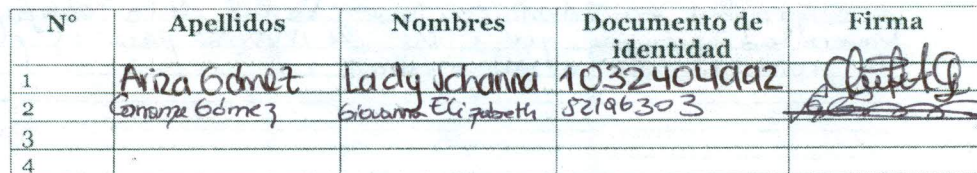 N° Apellidos Nombres Documento de identidad Firma
1 Ariza Gómez Lady Johanna 1032404992
2 Gómez Giovanna Elizabeth 52196303
3
4